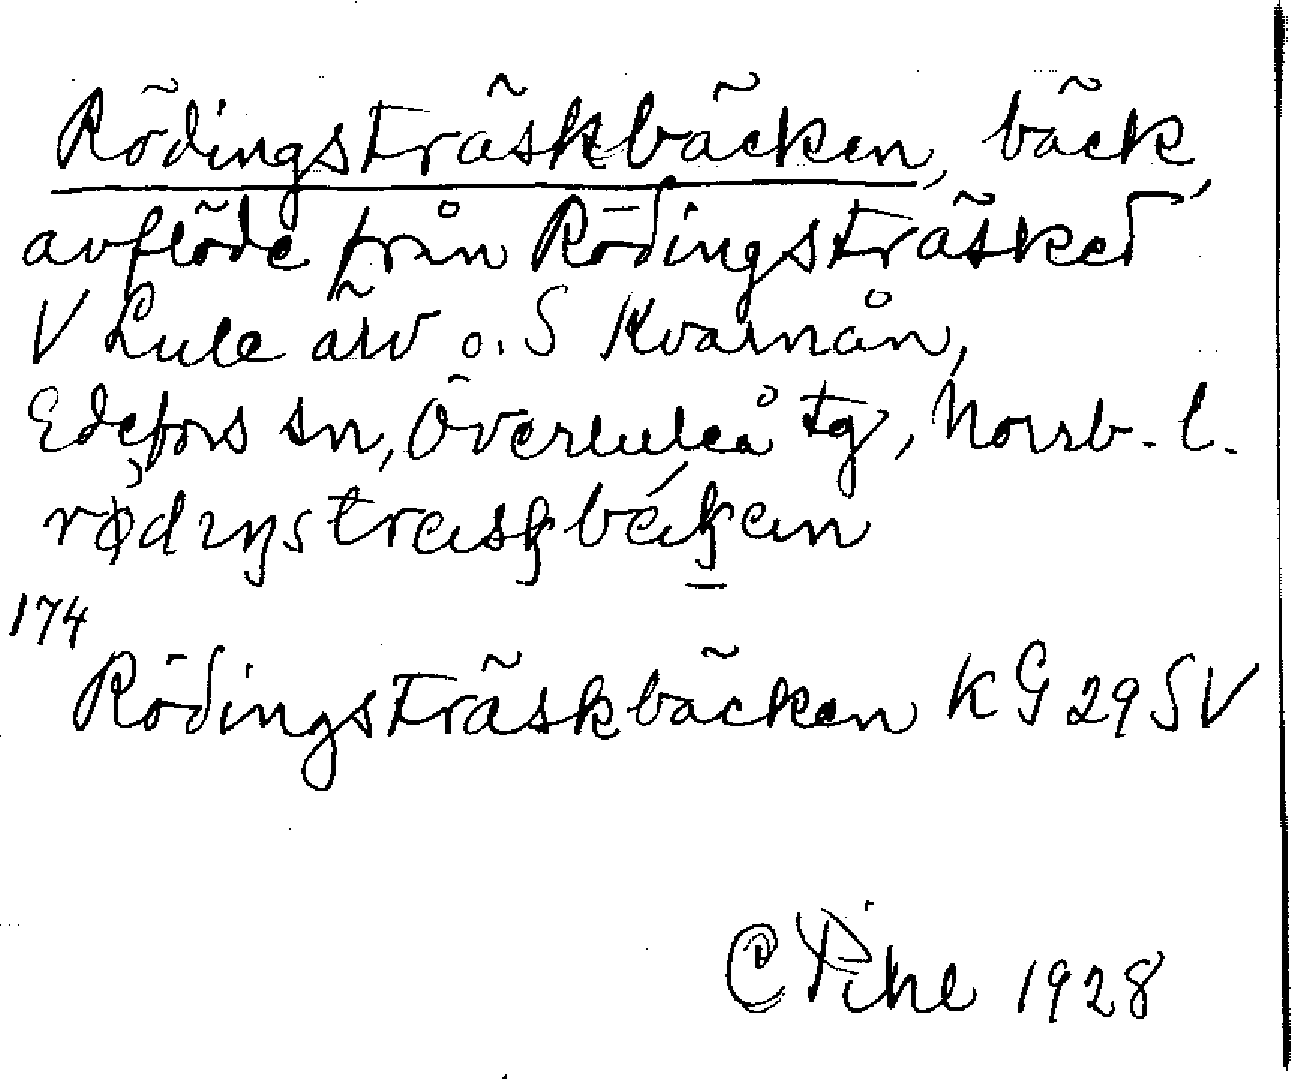 Rödingsträskbäcken, bäck,
avflöde från Rödingsträsket
V Lule älv o. S Kvarnån,
Edefors sn, Överluleå tg, Norrb. l.
174
Rödingsträskbäcken KG 29 SV
C Pihl 1928